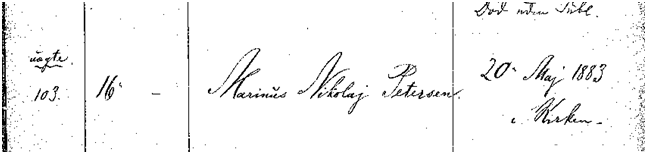 Død uden Daab.
uægte.
103. 16 - Marinus Nikolaj Petersen. 20 Maj 1883
i Kirken.